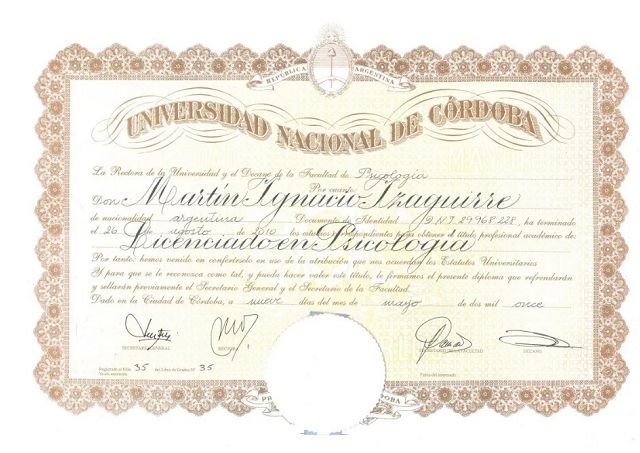 REPÚBLICA ARGENTINA
UNIVERSIDAD NACIONAL DE CÓRDOBA
La Rectora de la Universidad y el Decano de la Facultad de Psicología
Por cuanto
Don Martín Ignacio Izaguirre
de nacionalidad argentina Documento de Identidad D.N.I. 29.968.228, ha terminado
el 26 de agosto de 2010 los estudios correspondientes para obtener el título profesional académico de
Licenciado en Psicología
Por tanto: hemos venido en conferírselo en uso de la atribución que nos acuerdan los Estatutos Universitarios
Y para que se le reconozca como tal, y pueda hacer valer este título, le firmamos el presente diploma que refrendarán
y sellarán previamente el Secretario General y el Secretario de la Facultad.
Dado en la Ciudad de Córdoba, a nueve días del mes de mayo de dos mil once
SECRETARIO GENERAL RECTOR SECRETARIO DE LA FACULTAD DECANO
Registrado al folio 35 del Libro de Grados Nº 35
Firma del interesado